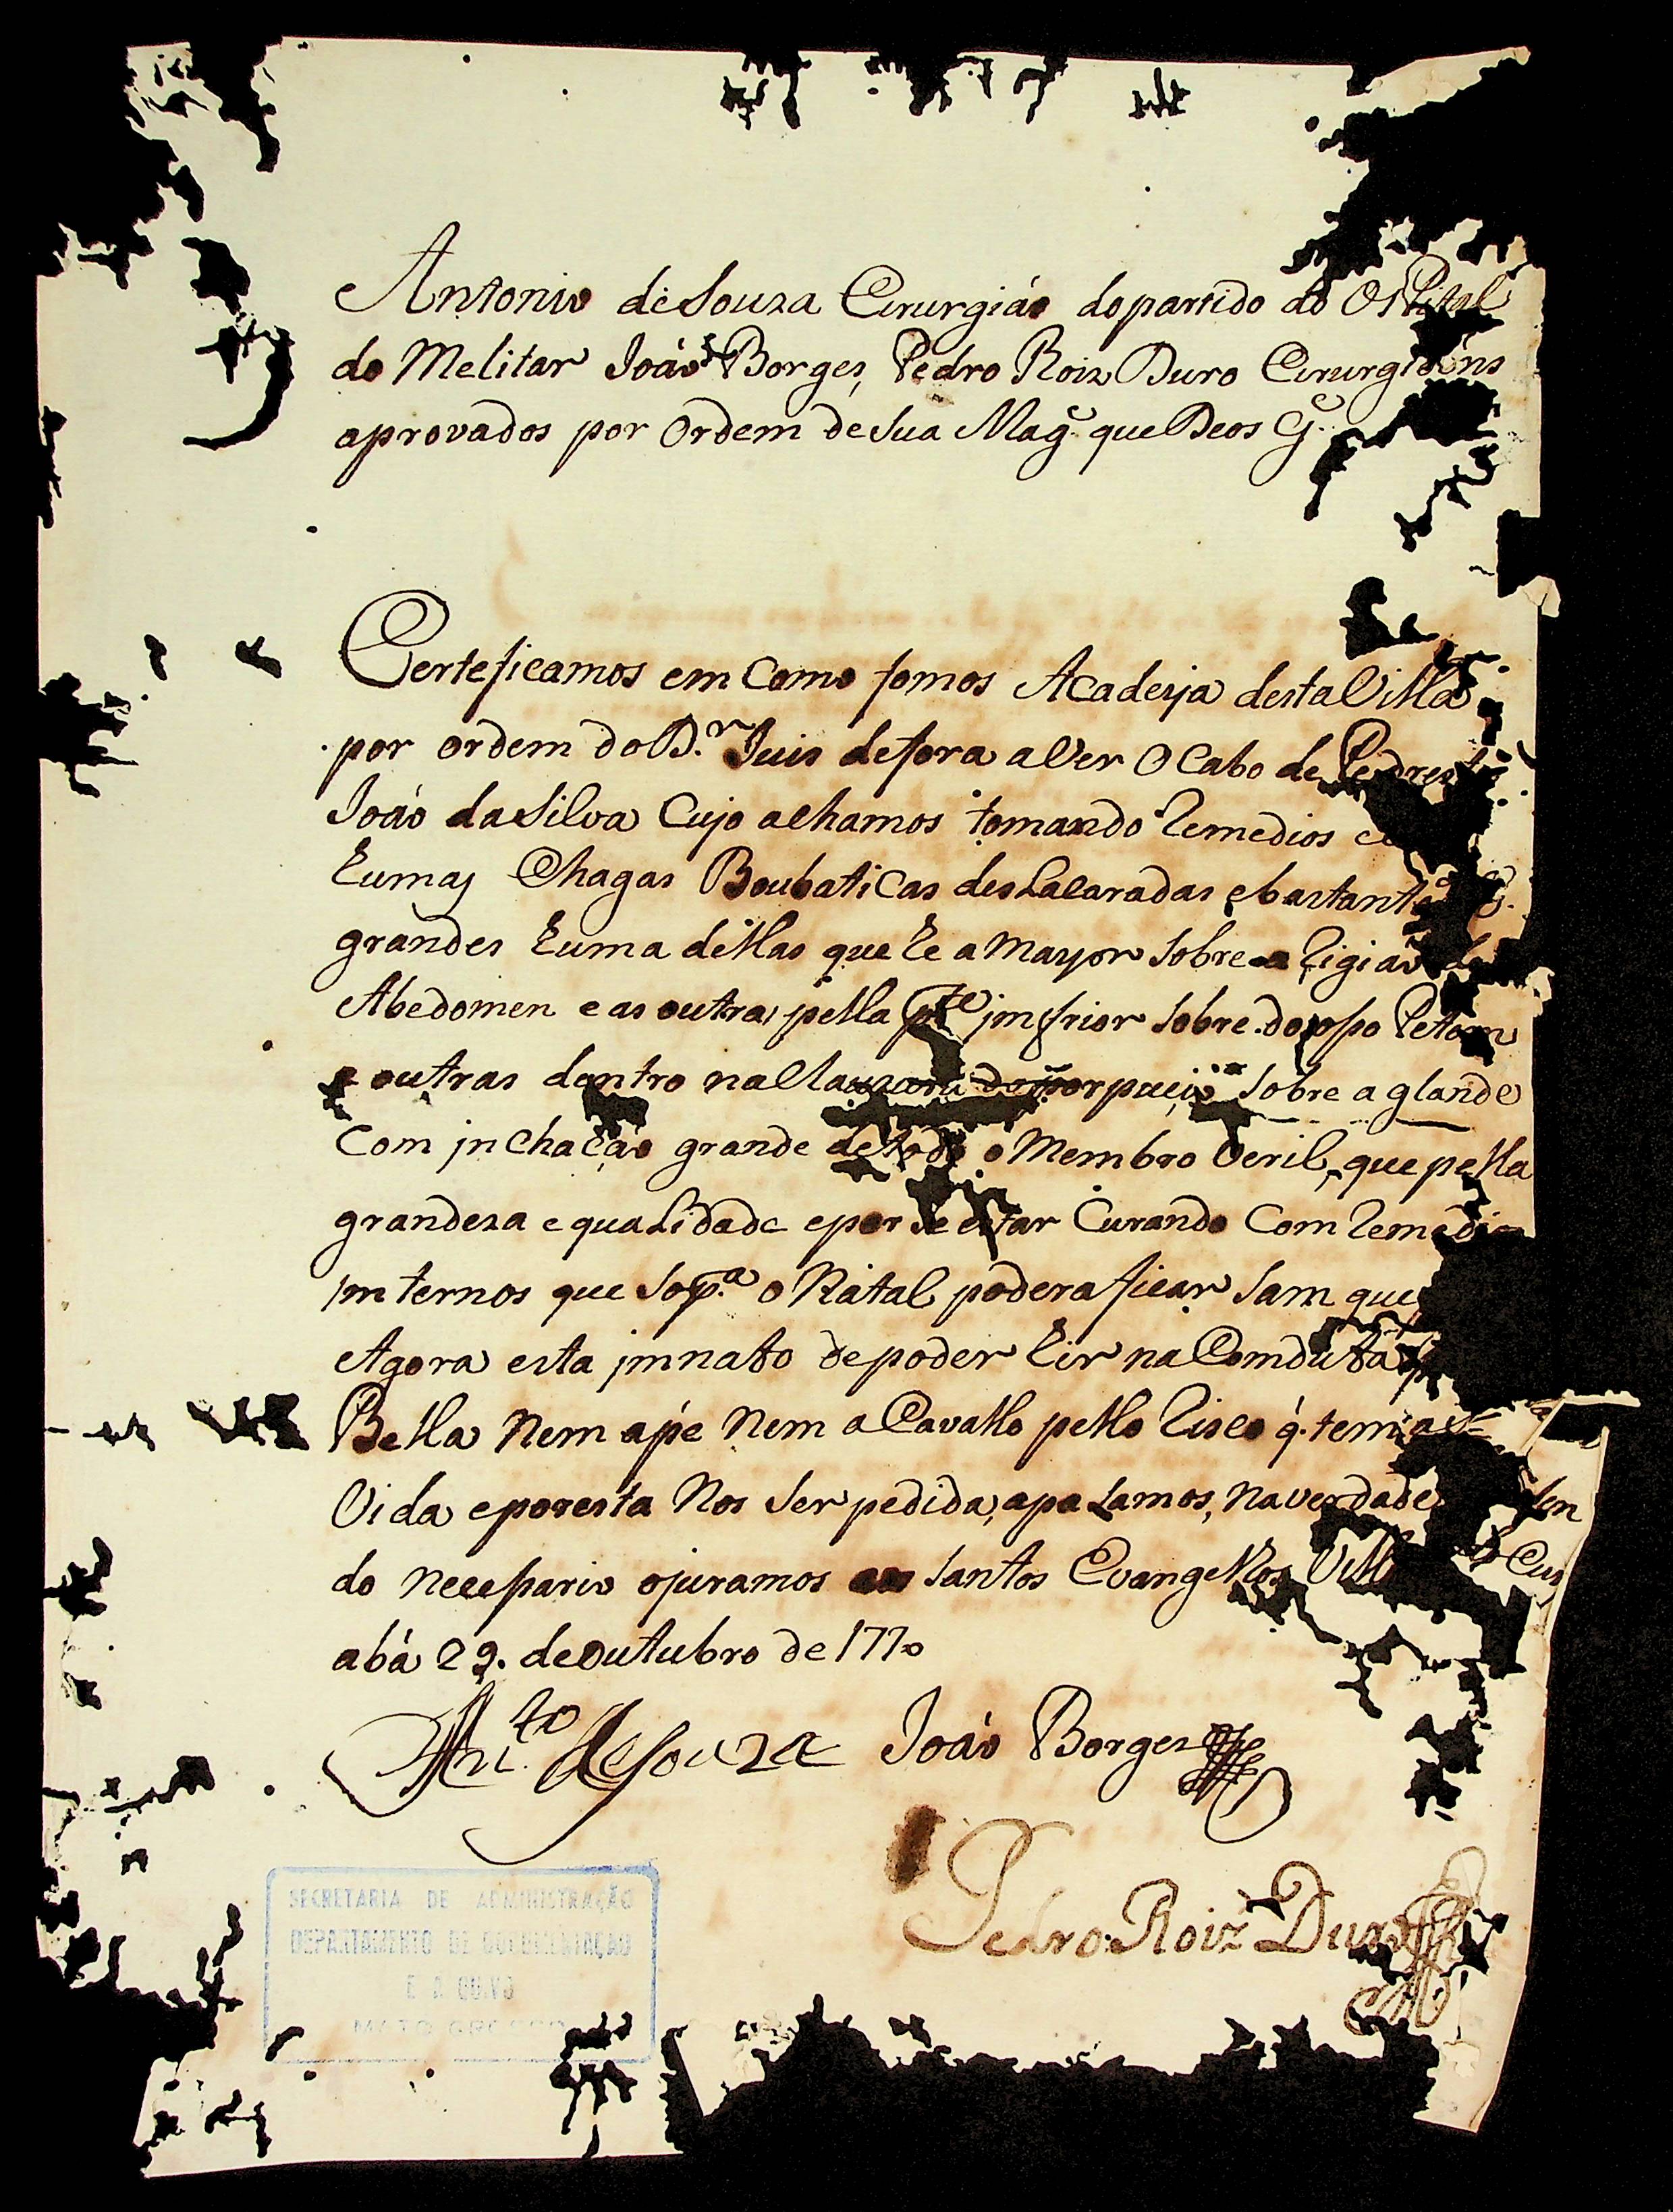 Antonio de Souza Cirurgiáo do partido do Ospital
do Melitar Joáo Borges, Pedro Roiz Duro Cirurgioins
aprovados por Ordem de Sua Mag.e que Deos G.e
Certeficamos em Como fomos Acadeya desta Villa
por ordem do D.r Juis de fora a Ver O Cabo de Pedrestes
Joáo da Silva Cujo achamos tomando Remedios
humas Chagas Boubaticas deslaceradas e bastante
grandes huma dellas que he a mayor sobre a Rigiáo do
Abedomen e as outras pella p.te jmfrior sobre do osso
e outras dentro na sobre a glande
Com jnchaçáo grande de todo o Membro Veril, que pella
grandeza e qualidade e por se estar Curando Com Remedios
jnternos que so p.a o Natal podera ficar sam que
Agora esta jmnato de poder hir na Comduta
Bella Nem a pé Nem a Cavallo pello Risco q. tem a
Vida e por esta Nos ser pedida, a passamos, na verdade sen
do necessario o juramos aos Santos Evangelhos Villa do Cuy
abá 29. de Outubro de 1770
Ant.to de Souza Joáo Borges
Pedro Roiz Duro
SECRETARIA DE ADMINISTRAÇÃO
DEPARTAMENTO DE DOCUMENTAÇÃO
E ARQUIVO
MATO GROSSO